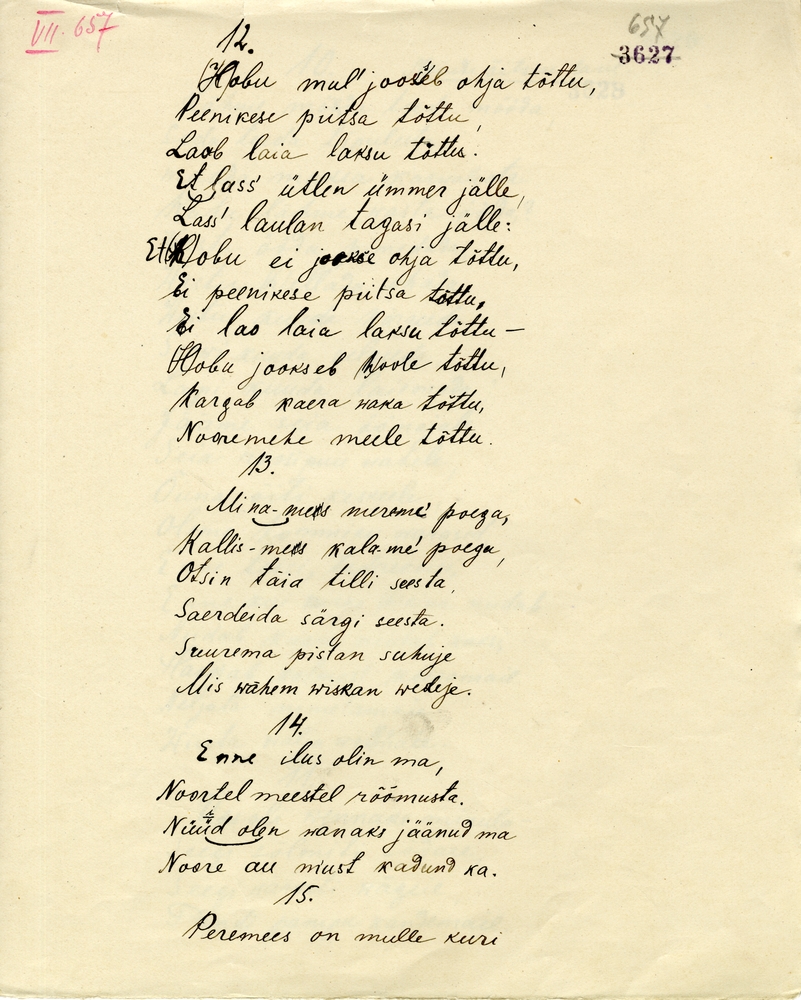 VII. 657
657
3627
12.
(H)obu mul' jookseb ohja tõttu,
Peenikese piitsa tõttu,
Laob laia laksu tõttu.
Et lass' ütlen ümmer jälle,
Lass' laulan tagasi jälle:
Et (h)obu ei jookse ohja tõttu,
Ei peenikese piitsa tõttu,
Ei lao laia laksu tõttu —
(H)obu jookseb hoole tõttu,
Kargab kaera waka tõttu,
Nooremehe meele tõttu.
13.
Mina-mees mereme' poega,
Kallis-mees kala-me' poega,
Otsin täia tilli seesta,
Saerdeida särgi seesta.
Suurema pistan suhuje
Mis wähem wiskan wedeje.
14.
Enne ilus olin ma,
Noortel meestel rõõmusta.
Nüüd olen wanaks jäänud ma
Noore au miust kadund ka.
15.
Peremees on mulle kuri